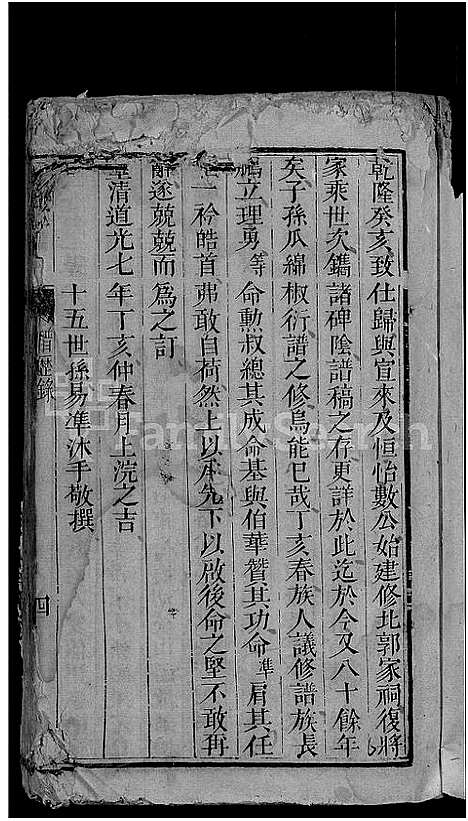 乾隆癸亥致仕歸與宜來及恒怡數公始建修北郭家祠復將
家乘世次鐫諸碑陰譜稿之存更詳於此迄於今又八十餘年
矣子孫瓜綿椒衍譜之修烏能已哉丁亥春族人議修譜族長
鳴立理勇等命勲叔總其成命基與伯華贊其功命準肩其任
一衿皓首弗敢自荷然上以承先下以啟後命之堅不敢再
辭遂兢兢而為之訂
皇清道光七年丁亥仲春月上浣之吉
十五世孫易準沐手敬撰
四
Family Search